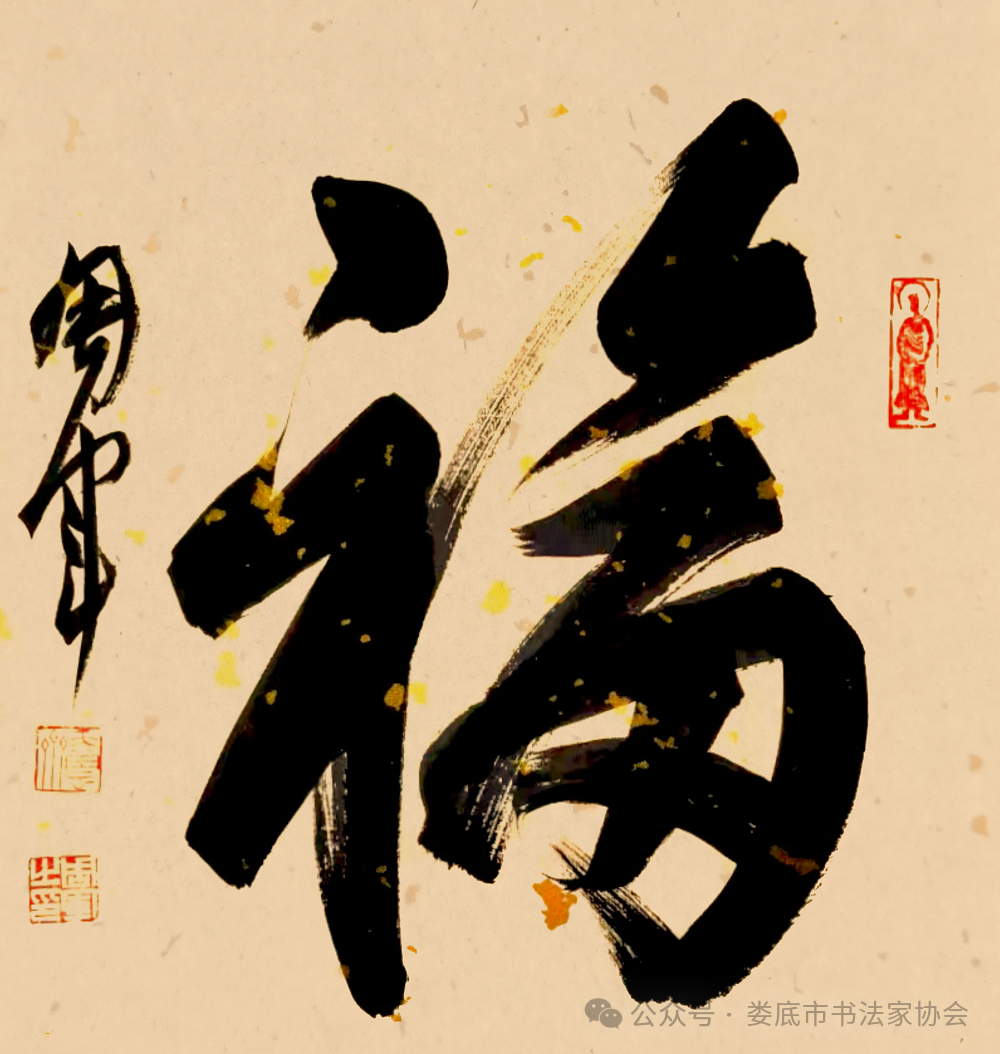 福
周軍
公众号 · 娄底市书法家协会